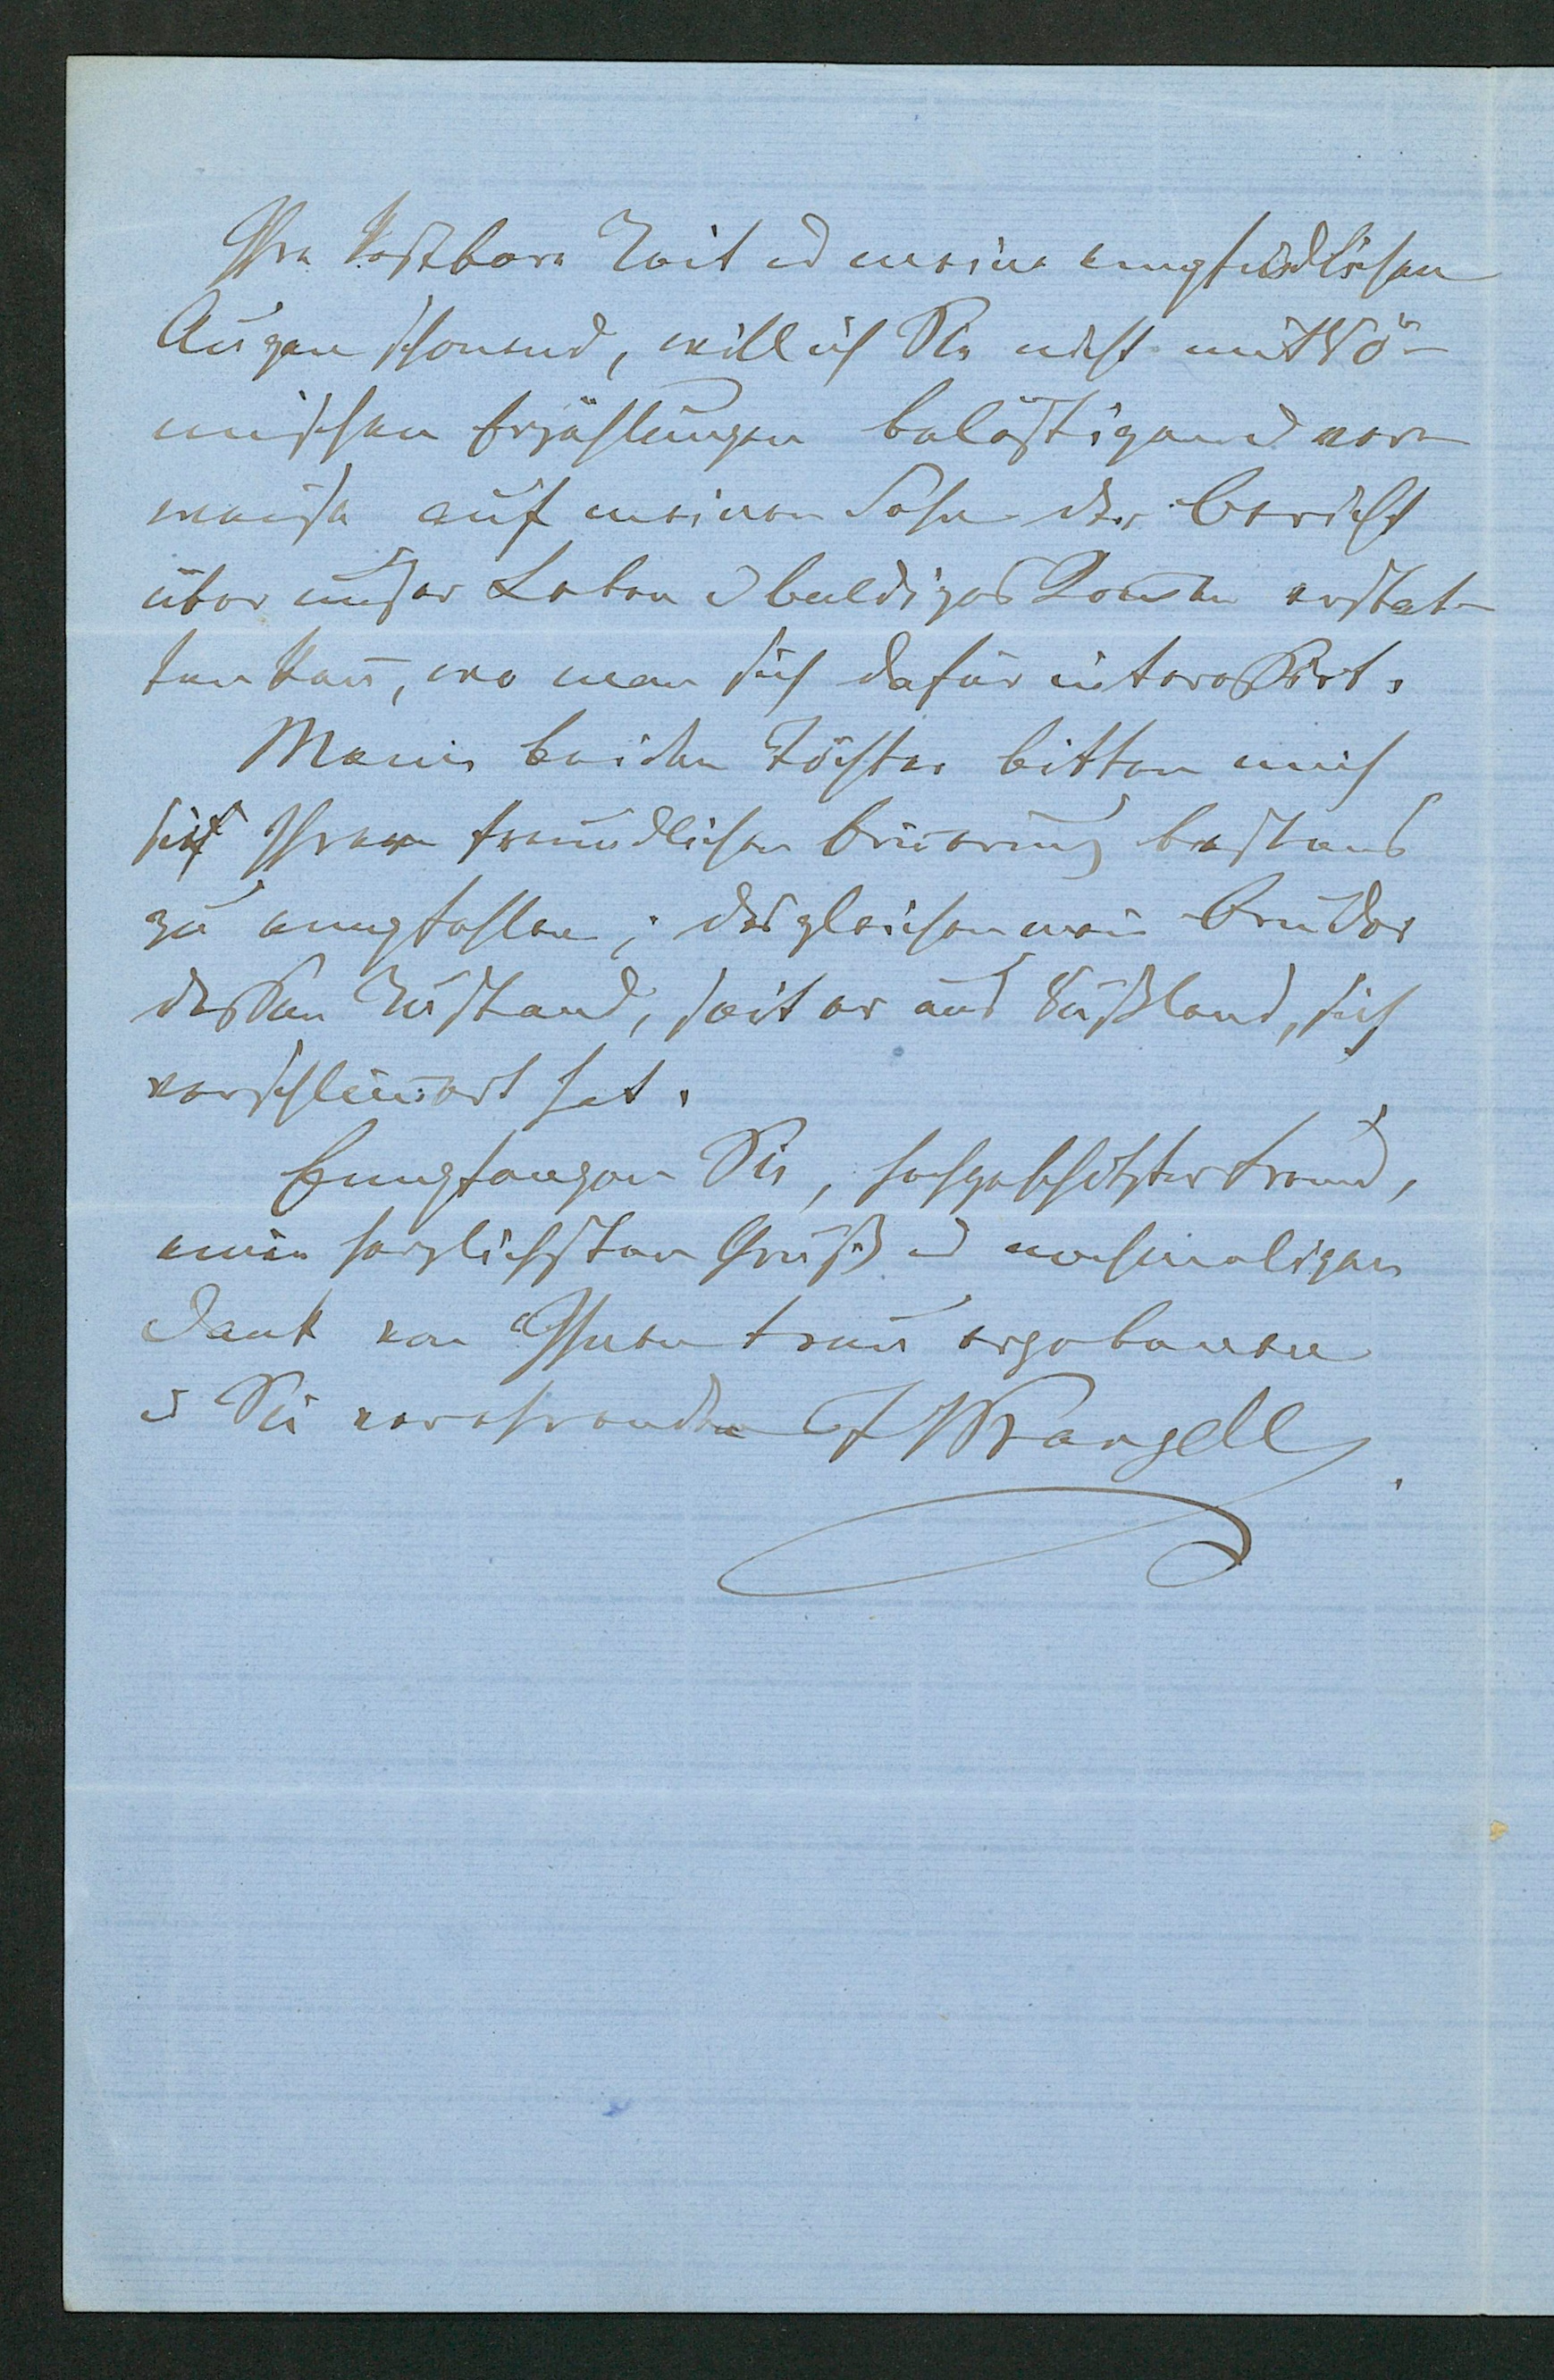 Ihre kostbare Zeit u meine empfindlichen
Augen schonend, will ich Sie nicht mit Rö-
mischen Erzählungen belästigen u ver-
weise auf meinen Sohn der Bericht
über unser Leben u baldiges Kom̅en erstat-
ten kan̅, wo man sich dafür interessirt.
Meine beiden Töchter bitten mich
sie Ihrer freundlichen Erin̅erung bestens
zu empfehlen; desgleichen mein Bruder
dessen Zustand, seit er aus Rußland, sich
verschlim̅ert hat.
Empfangen Sie, hochgeschätzter Freund,
meinen herzlichsten Gruß u nochmaligen
Dank von Ihrem treu ergebenen
u Sie verehrenden F Wrangell.